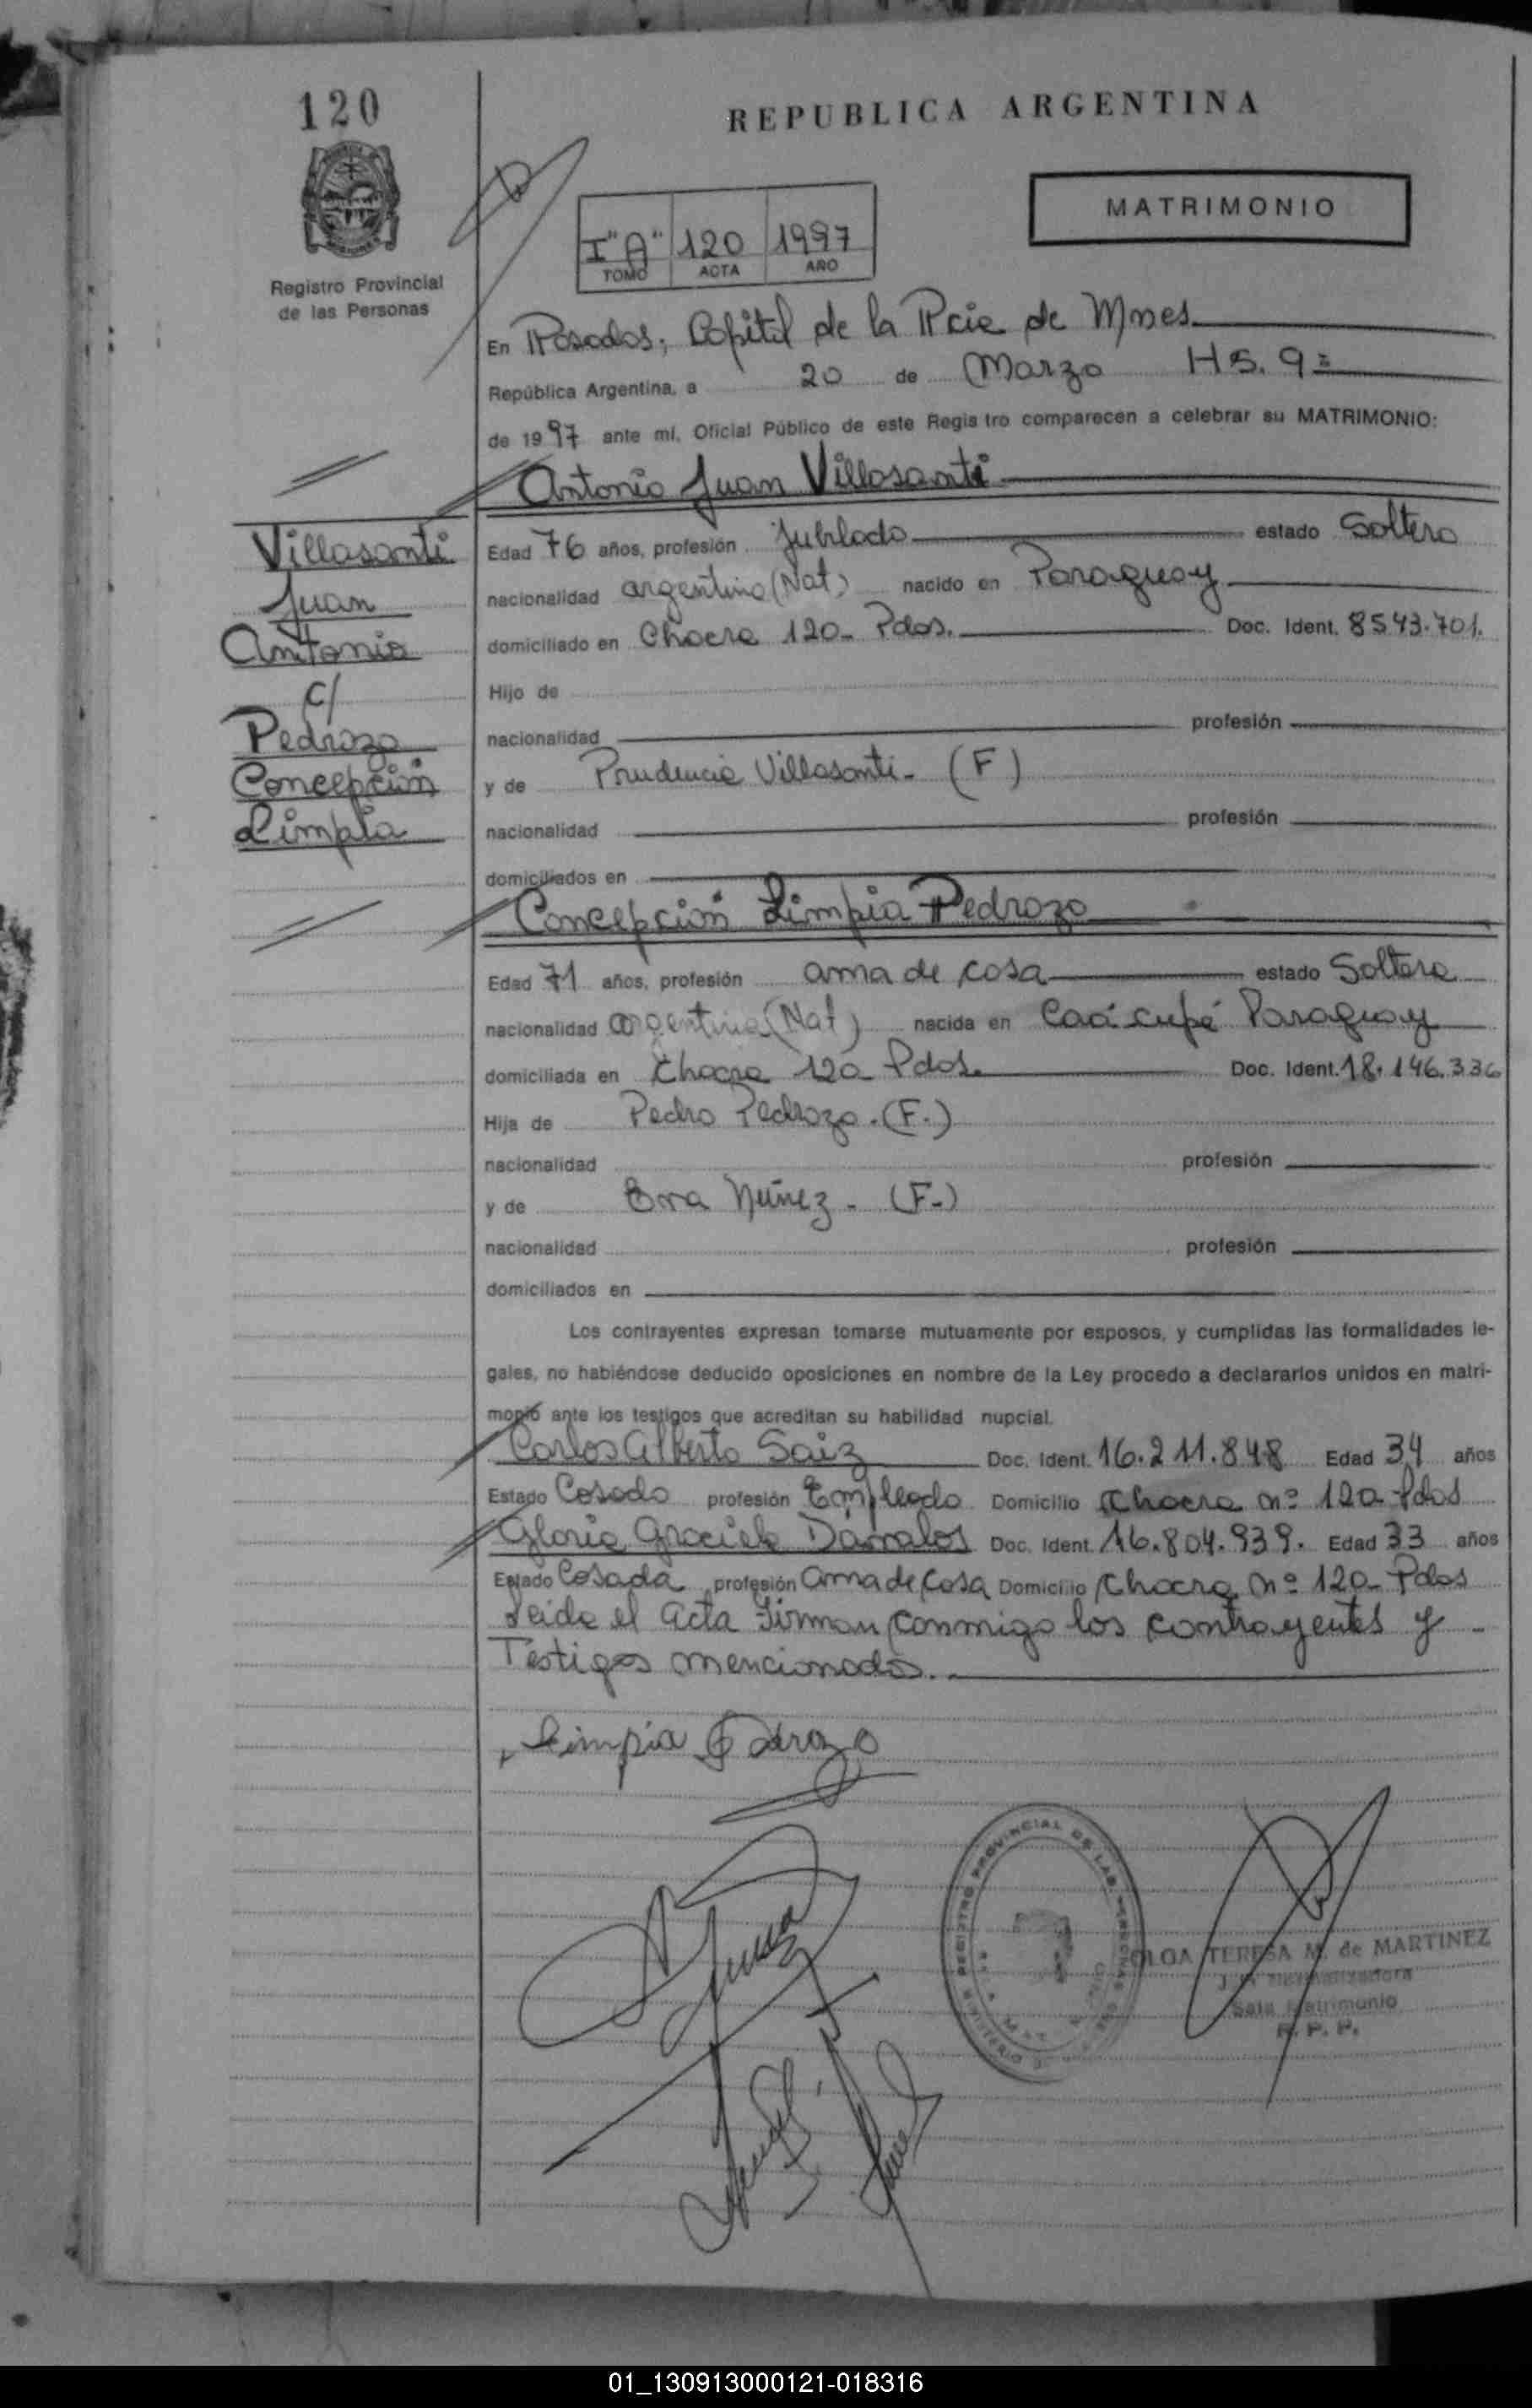 120
REPUBLICA ARGENTINA
MATRIMONIO
Registro Provincial
de las Personas
I "A" 120 1997
TOMO ACTA AÑO
En Posadas; Capital de la Pcia de Mnes
República Argentina, a 20 de Marzo HS. 9=
de 1997 ante mí, Oficial Público de este Registro comparecen a celebrar su MATRIMONIO:
Antonio Juan Villasanti
Villasanti
Juan
Antonio
c/
Pedrozo
Concepción
Limpia
Edad 76 años, profesión Jubilado estado Soltero
nacionalidad argentino (Nat) nacido en Paraguay
domiciliado en Chacra 120- Pdas. Doc. Ident. 8543.701.
Hijo de
nacionalidad profesión
y de Prudencia Villasanti- (F)
nacionalidad profesión
domiciliados en
Concepción Limpia Pedrozo
Edad 71 años, profesión ama de casa estado Soltera
nacionalidad argentina (Nat) nacida en Caácupé Paraguay
domiciliada en Chacra 120- Pdas. Doc. Ident. 18.146.336
Hija de Pedro Pedrozo. (F.)
nacionalidad profesión
y de Núñez - (F-)
nacionalidad profesión
domiciliados en
Los contrayentes expresan tomarse mutuamente por esposos, y cumplidas las formalidades le-
gales, no habiéndose deducido oposiciones en nombre de la Ley procedo a declararlos unidos en matri-
monio ante los testigos que acreditan su habilidad nupcial.
Carlos Alberto Saiz Doc. Ident. 16.211.848 Edad 34 años
Estado Casado profesión Empleado Domicilio Chacra nº 120- Pdas
Gloria Graciela Dávalos Doc. Ident. 16.804.939. Edad 33 años
Estado Casada profesión ama de casa Domicilio Chacra nº 120- Pdas
Leída el acta Firman conmigo los contrayentes y -
Testigos mencionados.-
Limpia Pedrozo
REGISTRO PROVINCIAL DE LAS PERSONAS
OLGA TERESA M. de MARTINEZ
Sala Matrimonio
R. P. P.
01_130913000121-018316